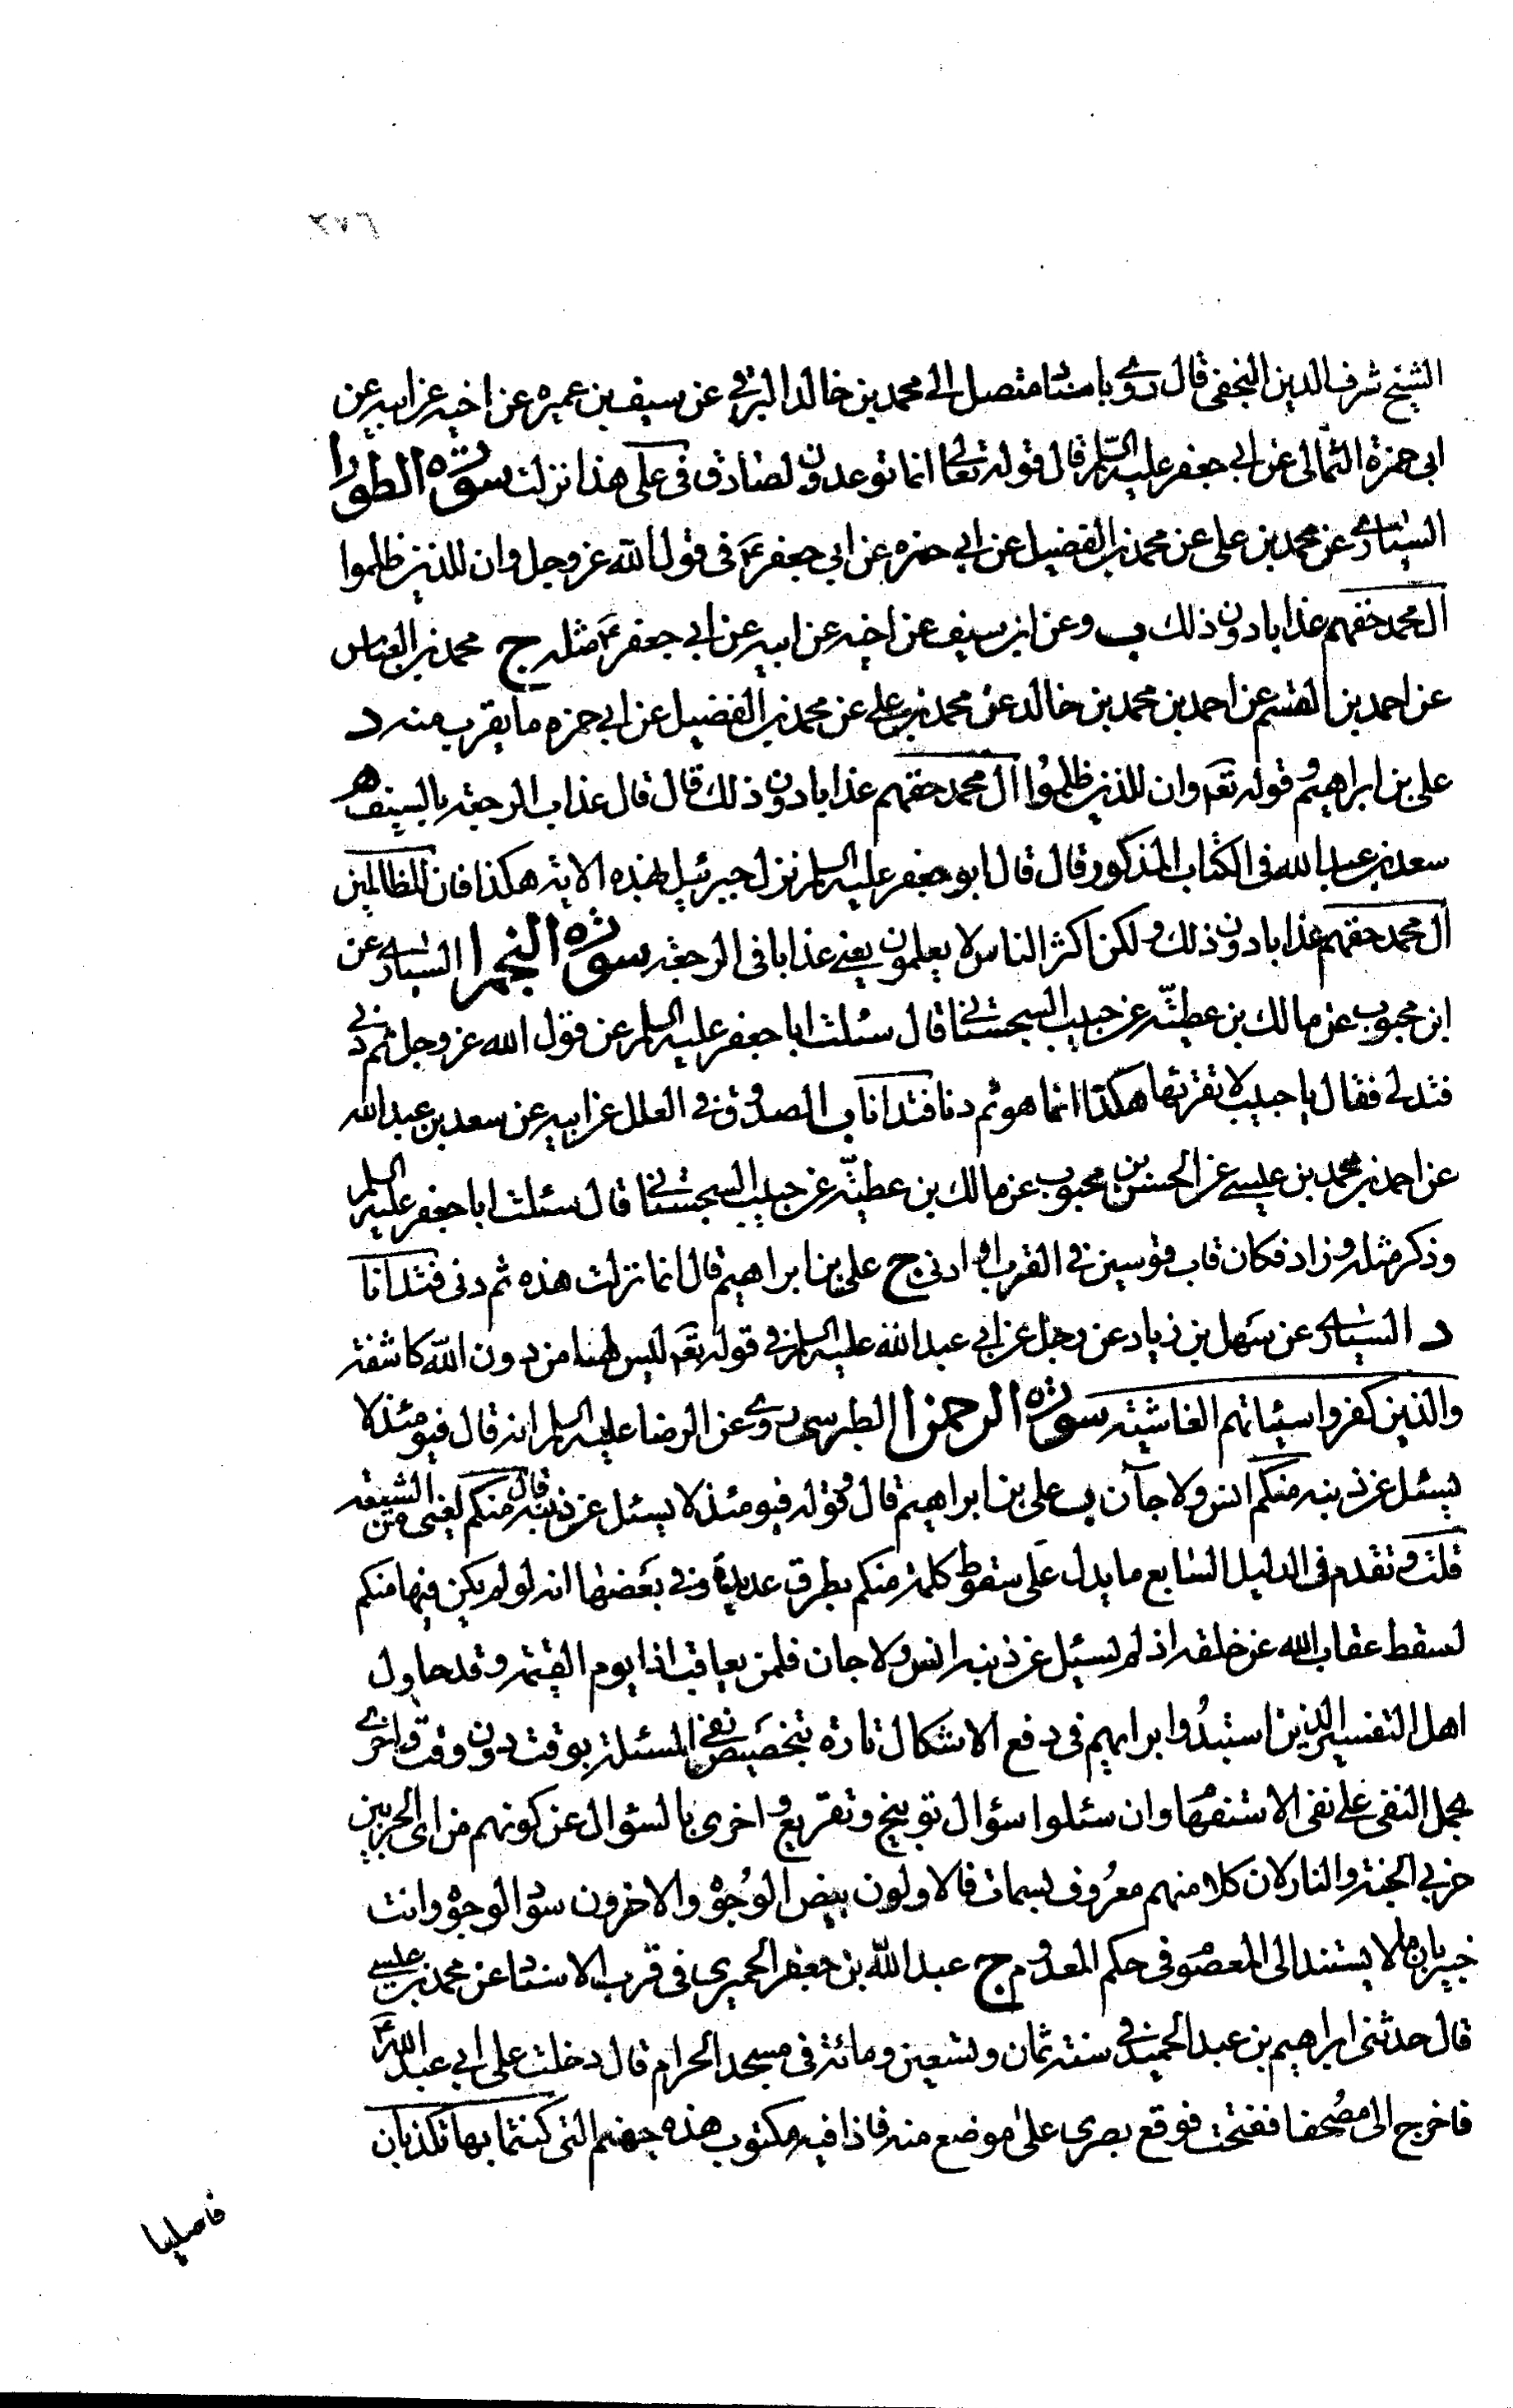 ٢٧٦
الشيخ شرف الدين النجفى قال روى باسناد متصل الى محمد بن خالد البرقى عن سيف بن عميره عن اخيه عن ابيه عن
ابى حمزة الثمالى عن ابى جعفر عليه السلم قال قوله تعالى انما توعدون لصادق فى على هكذا نزلت سورة الطور ا
السيارى عن محمد بن على عن محمد بن الفضيل عن ابى حمزه عن ابى جعفر ع فى قول الله عز وجل وان للذين ظلموا
ال محمد حقهم عذابا دون ذلك ب وعن ابن سيف عن اخيه عن ابيه عن ابى جعفر ع مثله ج محمد بن العباس
عن احمد بن القسم عن احمد بن محمد بن خالد عن محمد بن على عن محمد بن الفضيل عن ابى حمزه ما يقرب منه د
على بن ابراهيم و قوله تع وان للذين ظلموا ال محمد حقهم عذابا دون ذلك قال قال عذاب الرجعة بالسيف ه
سعد بن عبد الله فى الكتاب المذكور قال قال ابو جعفر عليه السلم نزل جبرئيل بهذه الاية هكذا فان للظالمين
ال محمد حقهم عذابا دون ذلك ولكن اكثر الناس لا يعلمون يعنى عذابا فى الرجعة سورة النجم ا السيارى عن
ابن محبوب عن مالك بن عطية عن حبيب السجستانى قال سئلت ابا جعفر عليه السلم عن قول الله عز وجل ثم دنى
فتدلى فقال يا حبيب لا تقرئها هكذا انما هو ثم دنا فتدانا ب الصدوق فى العلل عن ابيه عن سعد بن عبد الله
عن احمد بن محمد بن عيسى عن الحسن بن محبوب عن مالك بن عطية عن حبيب السجستانى قال سئلت ابا جعفر عليه السلم
وذكر مثله وزاد فكان قاب قوسين فى القرب او ادنى ج على بن ابراهيم قال انما نزلت هذه ثم دنى فتدانا
د السيارى عن سهل بن زياد عن رجل عن ابى عبد الله عليه السلم فى قوله تع ليس لها من دون الله كاشفة
والذين كفروا سيئاتهم الغاشية سورة الرحمن ا الطبرسى روى عن الرضا عليه السلم انه قال فيومئذ لا
يسئل عن ذنبه منكم انس ولا جآن ب على بن ابراهيم قال وقوله فيومئذ لا يسئل عن ذنبه قال منكم يعنى من الشيعة
قلت وتقدم فى الدليل السابع ما يدل على سقوط كلمة منكم بطرق عديدة وفى بعضها انه لو لم يكن فيها منكم
لسقط عقاب الله عن خلقه اذ لم يسئل عن ذنبه انس ولا جان فلمن يعاقب اذا يوم القيمة وقد حاول
اهل التفسير الذين استبدوا برايهم فى دفع الاشكال تارة بتخصيص نفى المسئلة بوقت دون وقت واخرى
بحمل النفى على نفى الاستفهام وان سئلوا سؤال توبيخ وتقريع واخرى بالسؤال عن كونهم من اى الحزبين
حزبى الجنة والنار لان كلا منهم معروف بسماة فالاولون بيض الوجوه والاخرون سود الوجوه وانت
خبير بان ما لا يستند الى المعصوم فى حكم المعدوم ج عبد الله بن جعفر الحميرى فى قرب الاسناد عن محمد بن عيسى
قال حدثنى ابراهيم بن عبد الحميد فى سنة ثمان وتسعين ومائة فى مسجد الحرام قال دخلت على ابى عبد الله ع
فاخرج الى مصحفا ففتحت فوقع بصرى على موضع منه فاذا فيه مكتوب هذه جهنم التى كنتما بها تكذبان
فاصليا